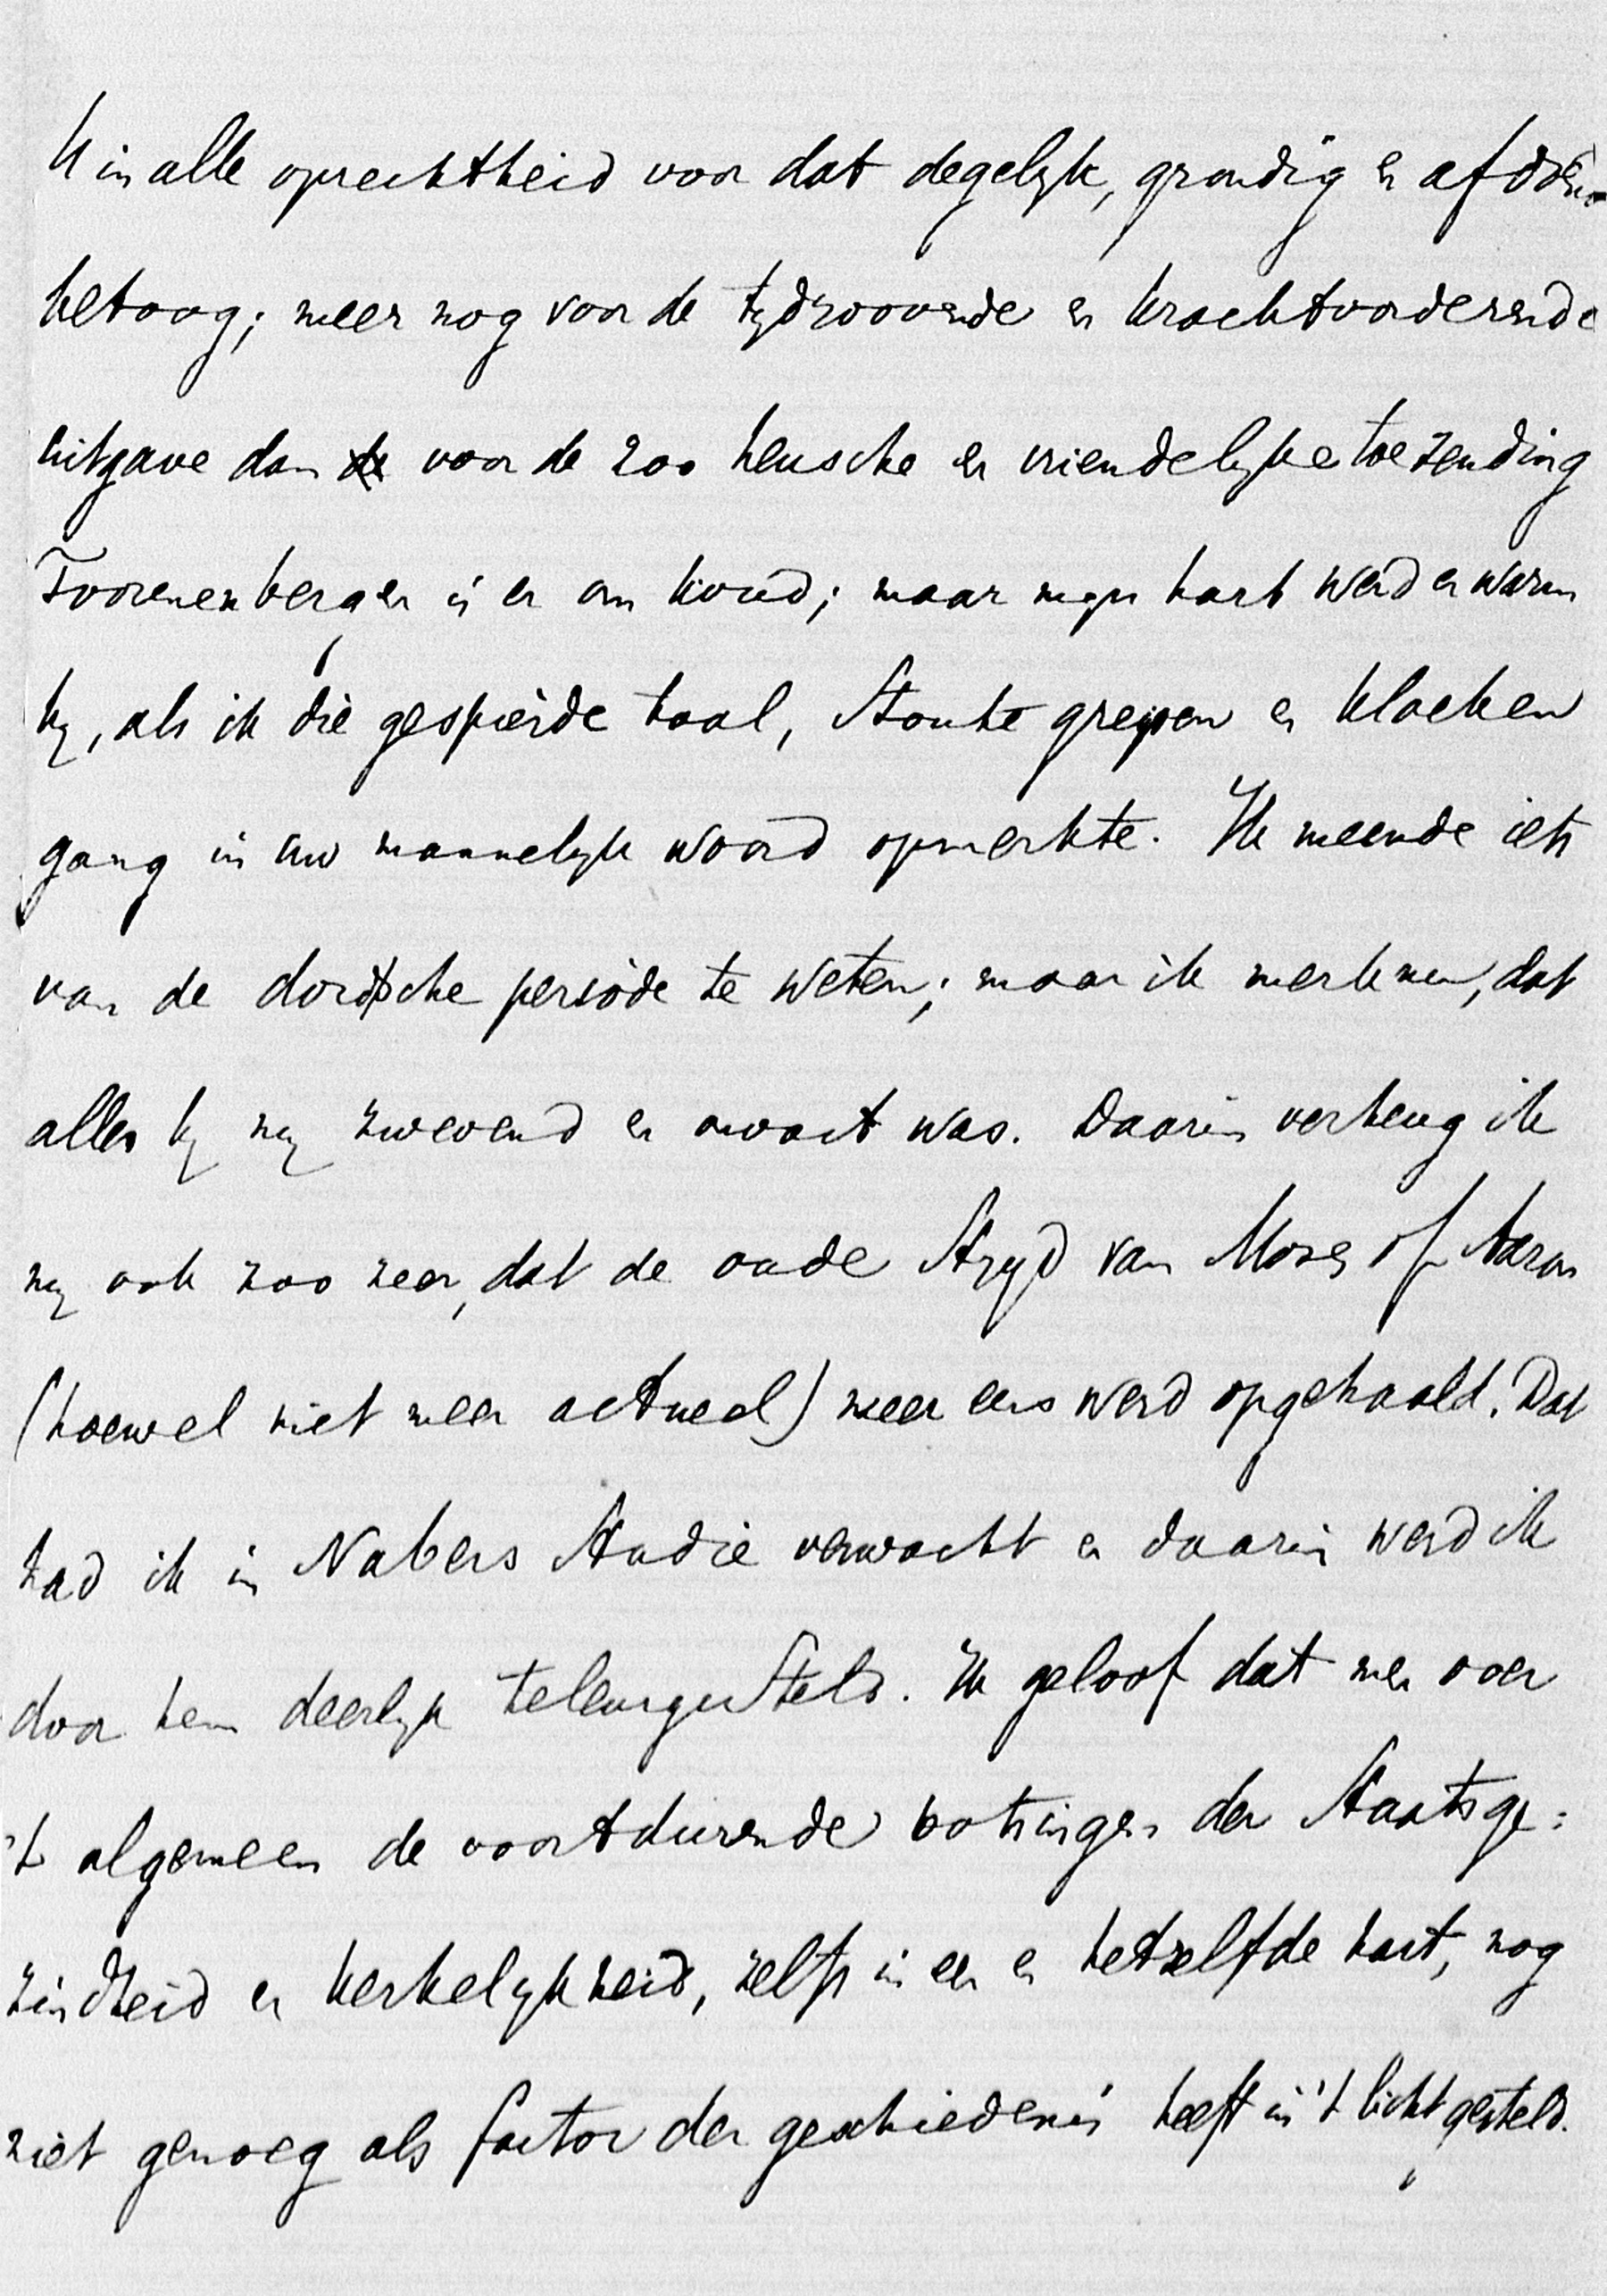 U in alle oprechtheid voor dat degelijk, grondig en afdoend
betoog; meer nog voor de tijdroovende en krachtvorderende
uitgave dan de voor de zoo heusche en vriendelijke toezending
Toorenenbergen is er om koud; maar mijn hart werd er warm
bij, als ik die gespierde taal, stoute grepen en kloeken
gang in uw mannelijk woord opmerkte. Ik meende iets
van de dordsche periode te weten; maar ik merk nu, dat
alles bij mij zwevend en onvast was. Daarin verheug ik
mij ook zoo zeer, dat de oude strijd van Mozes of Aaron
(hoewel niet meer actueel) weer eens werd opgehaald. Dat
had ik in Nabers studie verwacht en daarin werd ik
door hem deerlijk teleurgesteld. Ik geloof dat men over
't algemeen de voortdurende botsingen der Staatsge:
zindheid en kerkelijkheid, zelfs in een en hetzelfde hart, nog
niet genoeg als factor der geschiedenis heeft in 't licht gesteld.